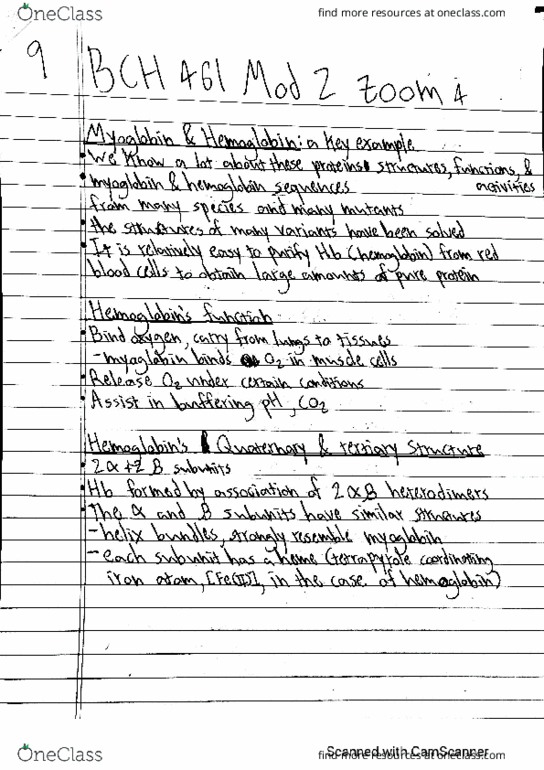 OneClass
find more resources at oneclass.com
9
BCH 461 Mod 2 Zoom 4
Myoglobin & Hemoglobin: a key example
• We know a lot about these proteins structures, functions, & activities
• myoglobin & hemoglobin sequences
from many species and many mutants
• the structures of many variants have been solved
• It is relatively easy to purify Hb (hemoglobin) from red
blood cells to obtain large amounts of pure protein
Hemoglobin's function
• Bind oxygen, carry from lungs to tissues
- myoglobin binds O2 in muscle cells
• Release O2 under certain conditions
• Assist in buffering pH, CO2
Hemoglobin's Quaternary & tertiary structure
• 2α + 2 β subunits
• Hb formed by association of 2 αβ heterodimers
• The α and β subunits have similar structures
- helix bundles, strongly resemble myoglobin
- each subunit has a heme (tetrapyrole coordinating
iron atom, [Fe(II)], in the case of hemoglobin)
OneClass
Scanned with CamScanner
find more resources at oneclass.com